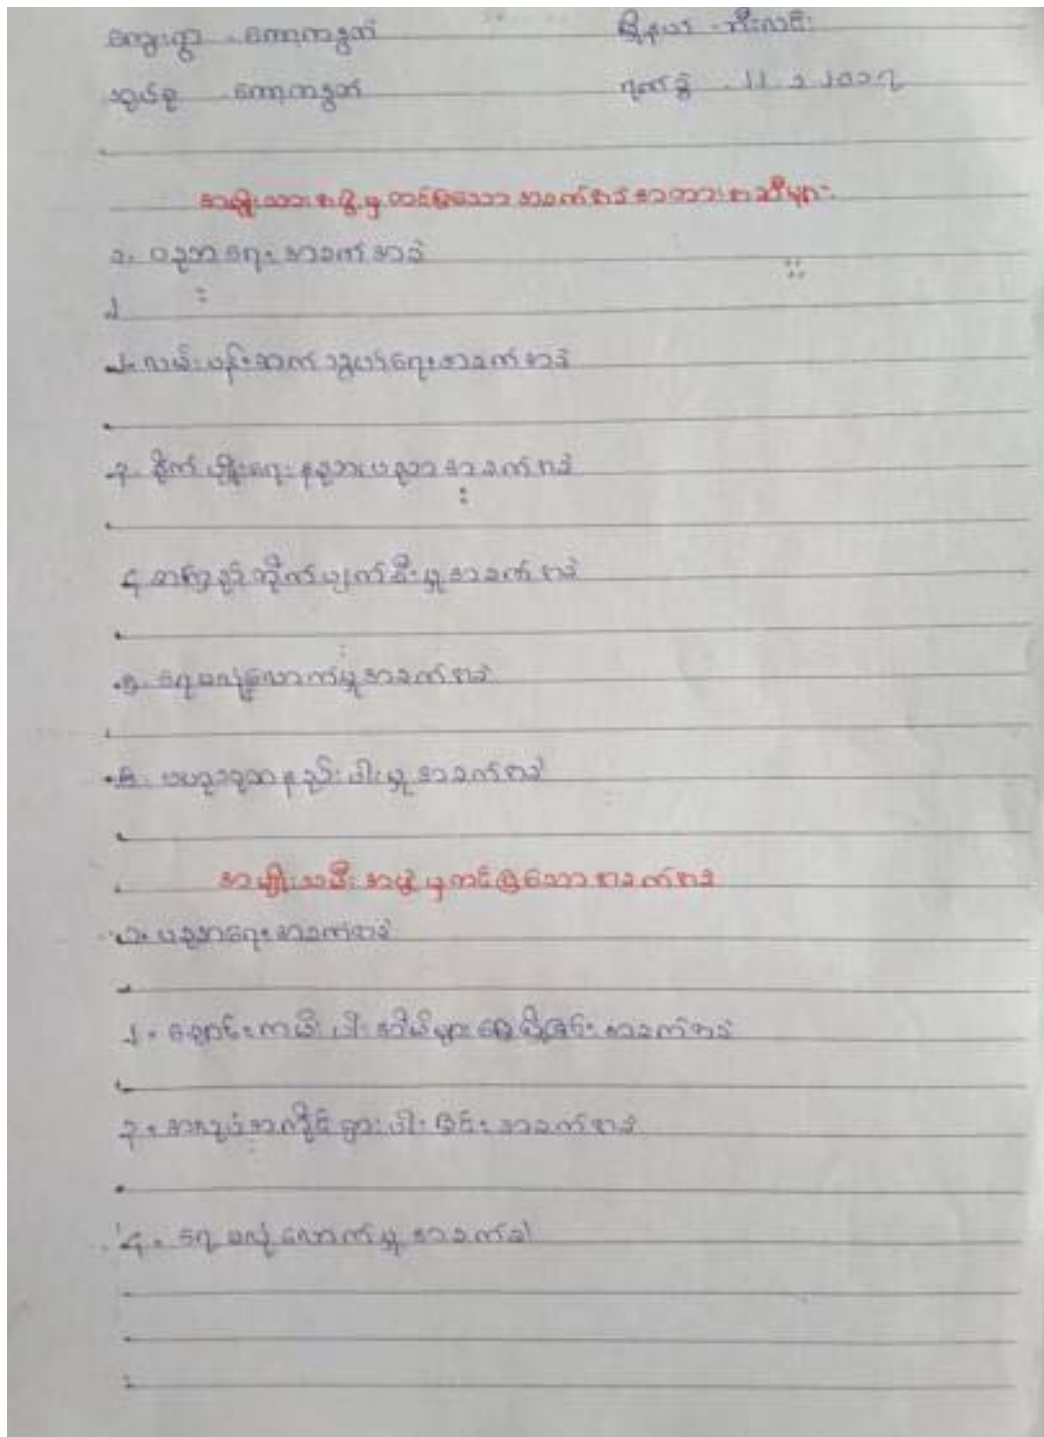 ကျေးရွာ - ကော့ကဒွတ် မြို့နယ် - ဘီးလင်း
သွယ်စု - ကော့ကဒွတ် ရက်စွဲ - ၂၂.၁.၂၀၁၇
အမျိုးသားအဖွဲ့မှ တင်ပြသော အခက်အခဲ အတားအဆီးများ
၁။ ပညာရေးအခက်အခဲ
၂
၂။ လမ်းပန်းဆက်သွယ်ရေးအခက်အခဲ
၃. စိုက်ပျိုးရေး နည်းပညာ အခက်အခဲ
၄ ဖျက်ဆီးမှု အခက်အခဲ
၅. ရေမလုံလောက်မှု အခက်အခဲ
၆. နည်းပါးမှု အခက်အခဲ
အမျိုးသမီး အဖွဲ့မှ တင်ပြသော အခက်အခဲ
၁။ ပညာရေး အခက်အခဲ
၂။ အိမ်များ ရွှေ့ပြောင်း အခက်အခဲ
၃။ အလုပ်အကိုင် ရှားပါးခြင်း အခက်အခဲ
၄။ ရေ မလုံလောက်မှု အခက်ခဲ